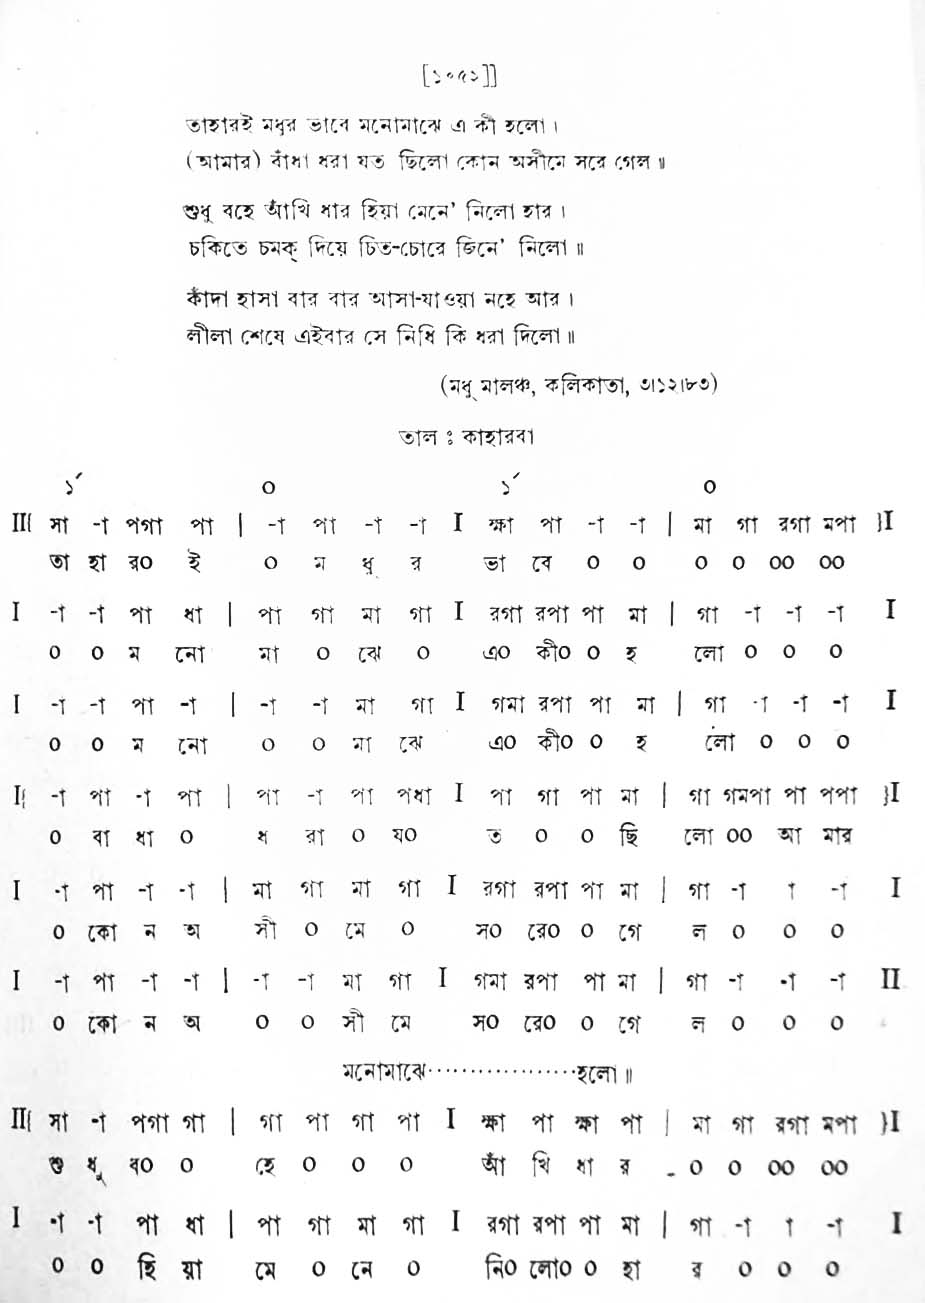 [১০৫১]]
তাহারই মধুর ভাবে মনোমাঝে এ কী হলো।
(আমার) বাঁধা ধরা যত ছিলো কোন অসীমে সরে গেল॥
শুধু বহে আঁখি ধার হিয়া মেনে' নিলো হার।
চকিতে চমক্ দিয়ে চিত-চোরে জিনে' নিলো॥
কাঁদা হাসা বার বার আসা-যাওয়া নহে আর।
লীলা শেষে এইবার সে নিধি কি ধরা দিলো॥
(মধু মালঞ্চ, কলিকাতা, ৩।১২।৮৩)
তাল ঃ কাহারবা
১´ ০ ১´ ০
II{ সা -া পগা পা | -া পা -া -া I ক্ষা পা -া -া | মা গা রগা মপা }I
তা হা র০ ই ০ ম ধু র ভা বে ০ ০ ০ ০ ০০ ০০
I -া -া পা ধা | পা গা মা গা I রগা রপা পা মা | গা -া -া -া I
০ ০ ম নো মা ০ ঝে ০ এ০ কী০ ০ হ লো ০ ০ ০
I -া -া পা -া | -া -া মা গা I গমা রপা পা মা | গা -া -া -া I
০ ০ ম নো ০ ০ মা ঝে এ০ কী০ ০ হ লো ০ ০ ০
I{ -া পা -া পা | পা -া পা পধা I পা গা পা মা | গা গমপা পা পপা }I
০ বা ধা ০ ধ রা ০ য০ ত ০ ০ ছি লো ০০ আ মার
I -া পা -া -া | মা গা মা গা I রগা রপা পা মা | গা -া া -া I
০ কো ন অ সী ০ মে ০ স০ রে০ ০ গে ল ০ ০ ০
I -া পা -া -া | -া -া মা গা I গমা রপা পা মা | গা -া -া -া II
০ কো ন অ ০ ০ সী মে স০ রে০ ০ গে ল ০ ০ ০
মনোমাঝে··················হলো॥
II{ সা -া পগা গা | গা পা গা পা I ক্ষা পা ক্ষা পা | মা গা রগা মপা }I
শু ধু ব০ ০ হে ০ ০ ০ আঁ খি ধা র ০ ০ ০০ ০০
I -া -া পা ধা | পা গা মা গা I রগা রপা পা মা | গা -া া -া I
০ ০ হি য়া মে ০ নে ০ নি০ লো০ ০ হা র ০ ০ ০